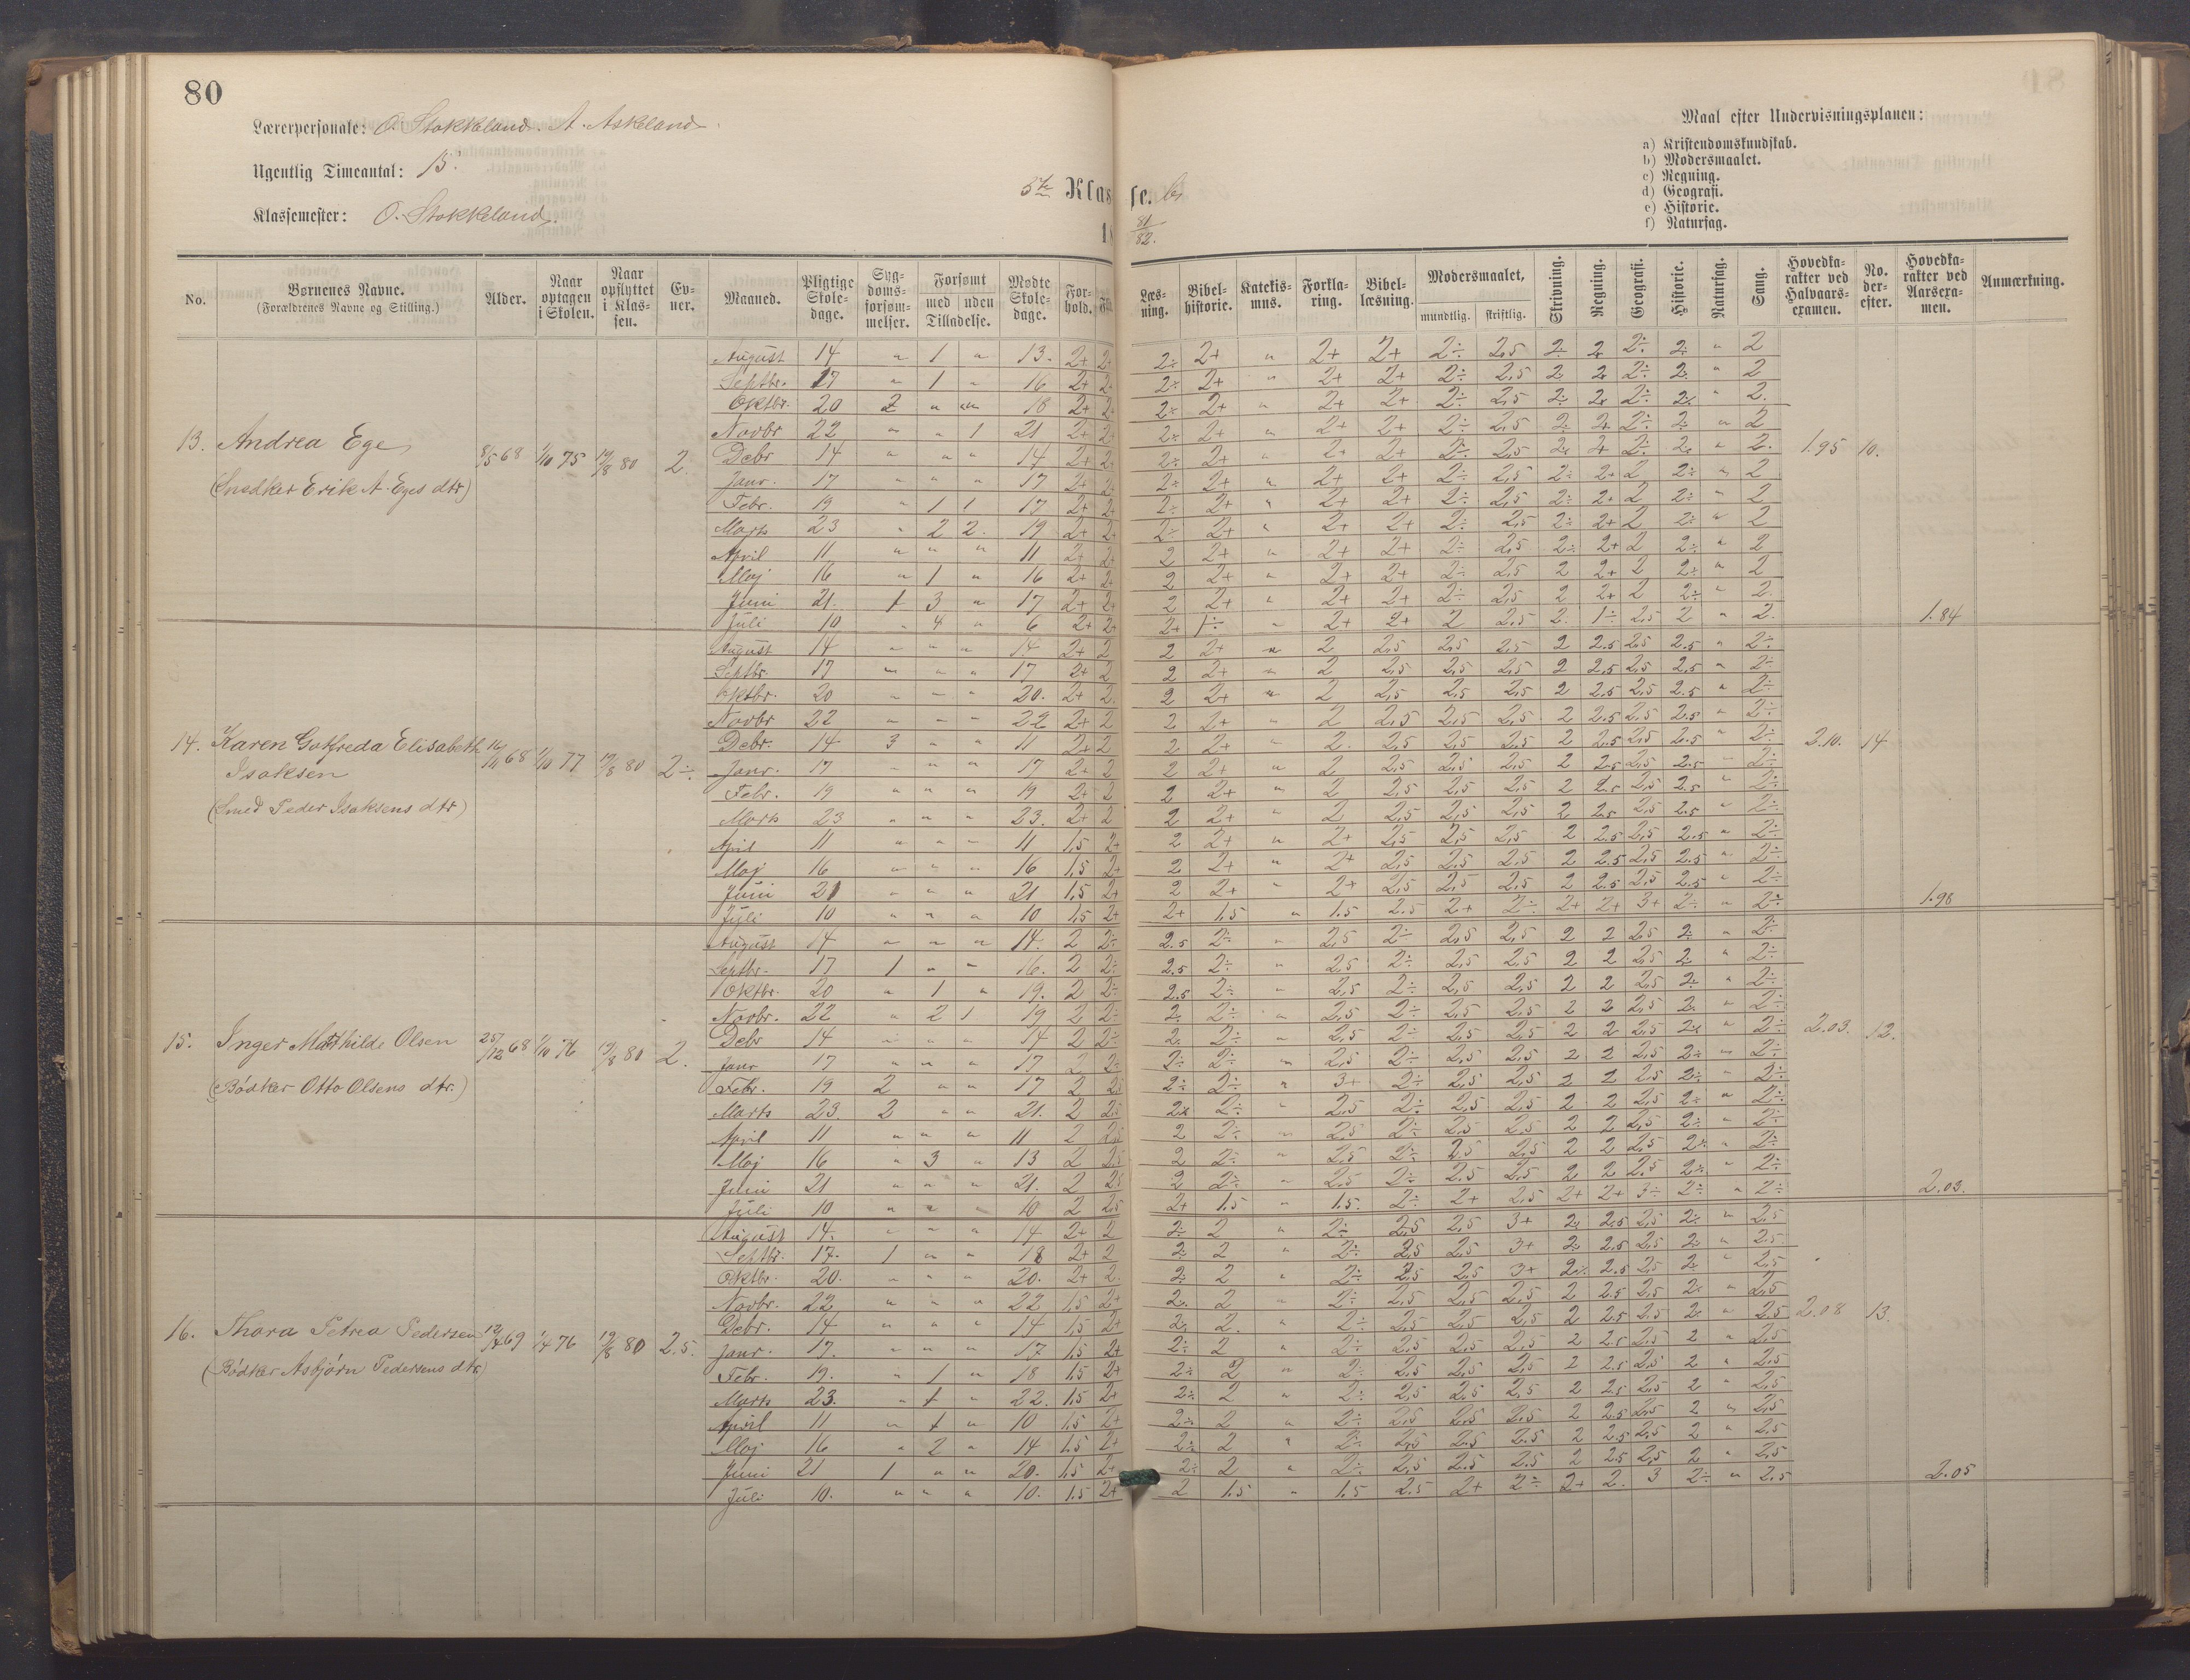 80
Lærerpersonale: O. Stokkeland. A. Askeland.
Ugentlig Timeantal: 15.
Klassemester: O. Stokkeland.
5te Klasse. b,
18 81/82.
Maal efter Undervisningsplanen:
a) Kristendomskundskab.
b) Modersmaalet.
c) Regning.
d) Geografi.
e) Historie.
f) Naturfag.
No. Børnenes Navne. (Forældrenes Navne og Stilling.) Alder. Naar optagen i Skolen. Naar opflyttet i Klassen. Evner. Maaned. Pligtige Skoledage. Sygdomsforsømmelser. Forsømt med uden Tilladelse. Mødte Skoledage. Forhold. Læsning. Bibelhistorie. Katekismus. Forklaring. Bibellæsning. Modersmaalet, mundtlig. skriftlig. Skrivning. Regning. Geografi. Historie. Naturfag. Sang. Hovedkarakter ved Halvaarsexamen. No. derefter. Hovedkarakter ved Aarsexamen. Anmærkning.
13. Andrea Ege
(Snedker Erik A. Eges dtr)
8/5 68 1/10 75 19/8 80 2.
August 14 " 1 " 13. 2+ 2+ 2÷ 2+ " 2+ 2+ 2÷ 2,5 2÷ 2 2÷ 2 " 2
Septbr. 17 " 1 " 16 2+ 2+ 2÷ 2+ " 2+ 2+ 2÷ 2,5 2 2 2÷ 2 " 2
Oktbr. 20 2 " " 18 2+ 2+ 2÷ 2+ " 2+ 2+ 2÷ 2,5 2÷ 2 2÷ 2 " 2.
Novbr 22 " " 1 21 2+ 2+ 2÷ 2+ " 2+ 2+ 2÷ 2,5 2 2 2÷ 2 " 2
Debr 14 " " " 14 2+ 2+ 2÷ 2+ " 2+ 2+ 2÷ 2,5 2 2+ 2÷ 2 " 2. 1.95 10.
Janr. 17 " " " 17 2+ 2+ 2÷ 2+ " 2+ 2+ 2÷ 2,5 2÷ 2+ 2 2÷ " 2
Febr. 19 " 1 1 17 2+ 2+ 2÷ 2+ " 2+ 2+ 2÷ 2,5 2÷ 2+ 2 2÷ " 2
Marts 23 " 2 2. 19 2+ 2+ 2÷ 2+ " 2+ 2+ 2÷ 2,5 2÷ 2+ 2 2÷ " 2
April 11 " " " 11 2+ 2+ 2 2+ " 2+ 2+ 2÷ 2,5 2÷ 2+ 2 2÷ " 2
Maj 16 " 1 " 16 2+ 2+ 2 2+ " 2+ 2+ 2÷ 2,5 2 2+ 2 2÷ " 2
Juni 21. 1 3 " 17 2+ 2+ 2 2+ " 2+ 2+ 2÷ 2,5 2 2+ 2 2÷ " 2.
Juli 10 " 4 " 6 2+ 2+ 2+ 1÷ " 2+ 2+ 2 2,5 2. 1÷ 2,5 2 " 2. 1.84
14. Karen Gotfreda Elisabeth
Isaksen
(Smed Peder Isaksens dtr)
16/11 68 1/10 77 19/8 80 2÷.
August 14 " " " 14 2+ 2 2 2+ " 2 2,5 2,5 2,5 2 2.5 2,5 2.5 " 2÷
Septbr. 17 " " " 17 2+ 2 2 2+ " 2 2,5 2,5 2,5 2 2.5 2,5 2.5 " 2÷
Oktbr. 20 " " " 20. 2+ 2 2 2+ " 2 2,5 2,5 2,5 2 2.5 2,5 2.5 " 2÷
Novbr 22 " " " 22 2+ 2 2 2+ " 2 2,5 2,5 2,5 2 2.5 2,5 2.5 " 2÷
Debr. 14 3 " " 11 2+ 2 2 2+ " 2. 2,5 2,5 2,5 2 2.5 2,5 2.5 " 2÷ 2.10. 14
Janr. 17 " " " 17 2+ 2 2 2+ " 2 2,5 2,5 2,5 2 2.5 2,5 2.5 " 2÷
Febr. 19 " " " 19 2+ 2 2 2+ " 2 2,5 2,5 2,5 2 2.5 2,5 2.5 " 2÷
Marts 23 " " " 23. 2+ 2 2 2+ " 2 2,5 2,5 2,5 2 2.5 2,5 2.5 " 2÷
April 11 " " " 11 1,5 2+ 2 2+ " 2+ 2,5 2,5 2,5 2 2.5 2,5 2.5 " 2÷
Maj 16 " " " 16 1,5 2+ 2 2+ " 2+ 2,5 2,5 2,5 2 2.5 2,5 2.5 " 2÷
Juni 21 " " " 21 1,5 2+ 2 2+ " 2+ 2,5 2,5 2,5 2 2.5 2,5 2.5 " 2÷
Juli 10 " " " 10 1,5 2+ 2+ 1.5 " 1.5 2.5 2+ 2÷ 2+ 2+ 3+ 2÷ " 2÷ 1.98
15. Inger Mathilde Olsen
(Bødker Otto Olsens dtr.)
25/12 68 1/10 76 19/8 80 2.
August 14 " " " 14. 2 2÷ 2.5 2÷ " 2,5 2÷ 2,5 2,5 2 2 2,5 2 " 2÷
Septbr. 17 1 " " 16. 2 2÷ 2.5 2÷ " 2,5 2÷ 2,5 2,5 2 2 2,5 2 " 2÷
Oktbr. 20 " 1 " 19. 2 2÷ 2.5 2÷ " 2,5 2÷ 2,5 2,5 2 2 2,5 2 " 2÷
Novbr. 22 " 2 1 19 2 2÷ 2 2÷ " 2,5 2÷ 2,5 2,5 2 2 2,5 2 " 2÷
Debr 14 " " " 14 2 2÷ 2 2÷ " 2,5 2÷ 2,5 2,5 2 2 2,5 2 " 2÷ 2.03. 12.
Janr 17 " " " 17 2 2÷ 2÷ 2÷ " 2,5 2÷ 2,5 2,5 2 2 2,5 2÷ " 2÷
Febr. 19 2 " " 17 2 2,5 2÷ 2÷ " 3+ 2÷ 2,5 2,5 2 2 2,5 2÷ " 2÷
Marts 23. 2 " " 21. 2 2,5 2 2÷ " 2,5 2÷ 2,5 2,5 2 2 2,5 2÷ " 2÷
April 11 " " " 11 2 2,5 2 2÷ " 2,5 2÷ 2,5 2,5 2 2 2,5 2÷ " 2÷
Maj 16 " 3 " 13 2 2,5 2 2÷ " 2,5 2÷ 2,5 2,5 2 2 2,5 2÷ " 2÷
Juni 21 " " " 21. 2 2,5 2 2÷ " 2,5 2÷ 2,5 2,5 2 2 2,5 2÷ " 2÷
Juli 10 " " " 10 2 2,5 2+ 1.5 " 1.5. 2÷ 2+ 2,5 2+ 2+ 3÷ 2÷ " 2÷ 2.03.
16. Thora Petrea Pedersen
(Bødker Asbjørn Pedersens dtr)
69 1/4 76 19/8 80 2.5.
August 14. " " " 14 2+ 2 2÷ 2 " 2÷ 2,5 2,5 3+ 2 2.5 2,5 2÷ " 2,5
Septbr. 17. 1 " " 18 2+ 2 2÷ 2 " 2÷ 2,5 2,5 3+ 2 2.5 2,5 2 " 2.5
Oktbr. 20. " " " 20. 2+ 2. 2÷ 2 " 2÷ 2,5 2,5 3+ 2÷ 2.5 2,5 2 " 2,5
Novbr. 22 " " " 22 1,5 2+ 2. 2 " 2÷ 2,5 2,5 2,5 2 2.5 2,5 2 " 2,5
Debr. 14 " " " 14 1,5 2+ 2 2. " 2÷ 2,5 2,5 2,5 2 2.5 2,5 2 " 2.5 2.08 13.
Janr. 17. " " " 17 1,5 2+ 2÷ 2 " 2÷ 2,5 2,5 2,5 2 2.5 2,5 2 " 2,5
Febr. 19. " 1 " 18 1,5 2+ 2÷ 2 " 2÷ 2,5 2,5 2,5 2 2.5 2,5 2 " 2,5
Marts 23. " 1 " 22. 1.5 2+ 2÷ 2 " 2÷ 2,5 2,5 2,5 2 2.5 2,5 2 " 2,5
April 11 " 1 " 10 1,5 2+ 2÷ 2 " 2÷ 2,5 2,5 2,5 2 2.5 2,5 2 " 2,5
Maj 16 " 2 " 14 1.5 2+ 2÷ 2 " 2÷ 2,5 2.5 2.5 2 2.5 2,5 2 " 2,5
Juni 21 1 " " 20. 1,5 2+ 2÷ 2 " 2÷ 2,5 2.5 2.5 2 2.5 2,5 2 " 2,5
Juli 10. " " " 10. 1.5 2+ 2 1.5 " 1.5 2.5 2+ 2÷ 2+ 2. 3 2÷ " 2.5 2.05